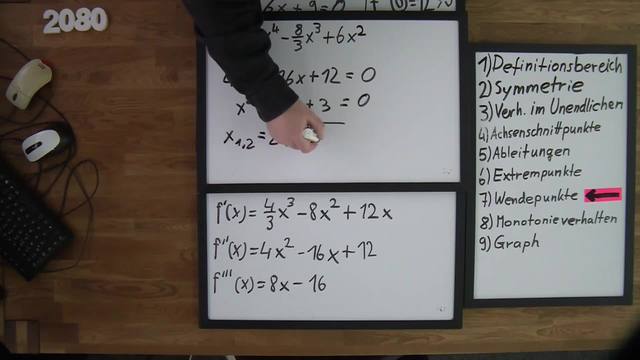 2080
6x + 9 = 0
⁴ - 8/3 x³ + 6x²
6x + 12 = 0
x + 3 = 0
x₁,₂ = 2
f'(x) = 4/3 x³ - 8x² + 12x
f''(x) = 4x² - 16x + 12
f'''(x) = 8x - 16
1) Definitionsbereich
2) Symmetrie
3) Verh. im Unendlichen
4) Achsenschnittpunkte
5) Ableitungen
6) Extrempunkte
7) Wendepunkte
8) Monotonieverhalten
9) Graph